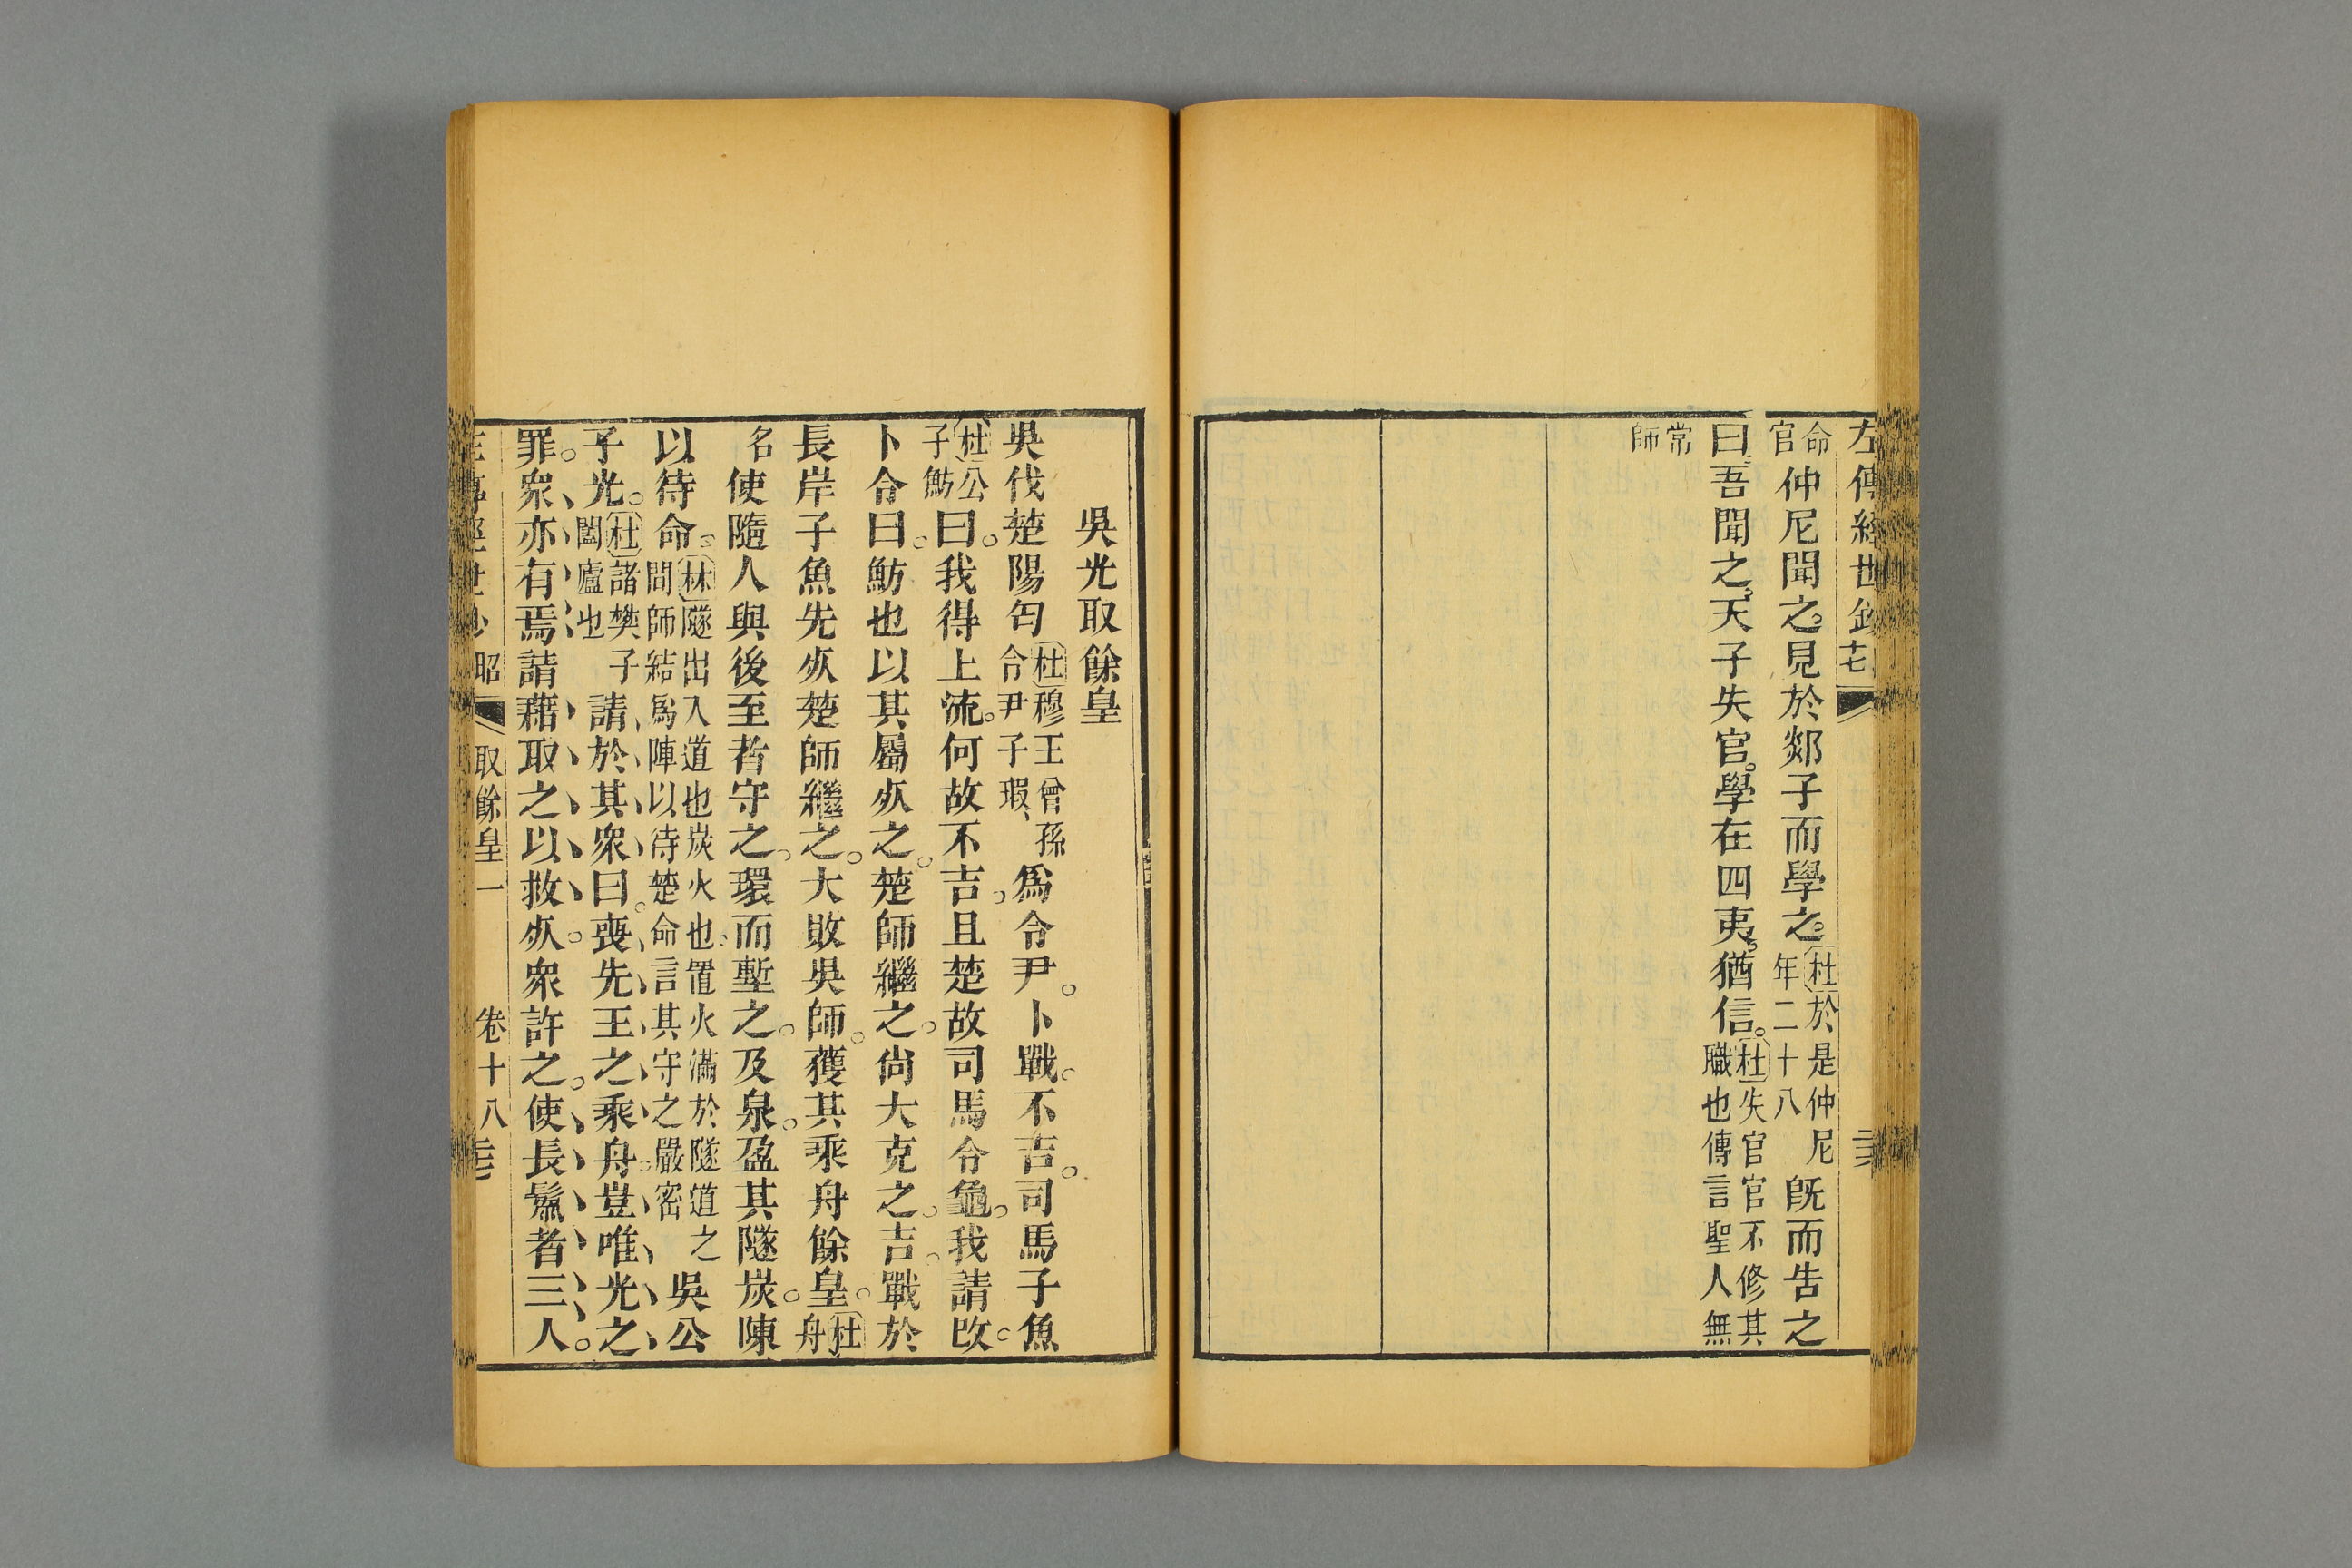 左傳經世鈔
命官仲尼聞之。見於郯子而學之。杜於是仲尼年二十八旣而告之
曰。吾聞之。天子失官。學在四夷。猶信。杜失官官不修其職也傳言聖人無
常師
吳光取餘皇
吳伐楚陽匄杜穆王曾孫令尹子瑕、爲令尹。卜戰。不吉。司馬子魚
杜公子魴曰。我得上流。何故不吉。且楚故司馬令龜。我請改
卜令曰。魴也以其屬𣦸之。楚師繼之。尙大克之。吉。戰於
長岸子魚先𣦸楚師繼之。大敗吳師。獲其乘舟餘皇。杜舟
名使隨人與後至者守之。環而塹之。及泉。盈其隧炭。陳
以待命。林隧出入道也炭火也。置火滿於隧道之間師結爲陣以待楚命言其守之嚴密吳公
子光。杜諸樊子闔廬也請於其衆曰。喪先王之乘舟。豈唯光之
罪。衆亦有焉請藉取之以救𣦸。衆許之。使長鬣者三人。
昭 取餘皇一 卷十八